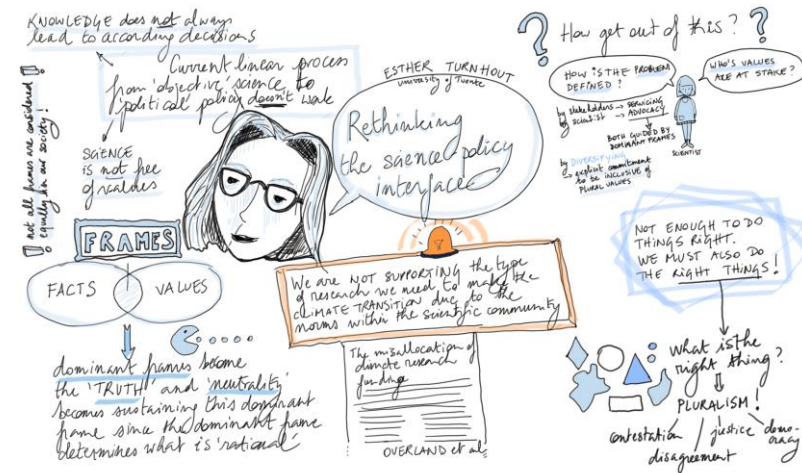 KNOWLEDGE does not always
lead to according decisions
Current linear process
from 'objective' science to
'political' policy doesn't work
! not all frames are considered !
! equally in our society! !
SCIENCE
is not free
of values
FRAMES
FACTS
VALUES
dominant frames become
the 'TRUTH' and 'neutrality'
becomes sustaining this dominant
frame since the dominant frame
determines what is 'rational'
ESTHER TURNHOUT
University of Twente
Rethinking
the science-policy
interface
We are NOT SUPPORTING the type
of research we need to make the
CLIMATE TRANSITION due to the
norms within the scientific community
The misallocation of
climate research
funding
OVERLAND et al.
? How get out of this? ?
HOW IS THE PROBLEM
DEFINED?
WHO'S VALUES
ARE AT STAKE?
by stakeholders → SERVICING
by scientist → ADVOCACY
BOTH GUIDED BY
DOMINANT FRAMES
SCIENTIST
by DIVERSIFYING
→ explicit commitment
to be INCLUSIVE OF
PLURAL VALUES
NOT ENOUGH TO DO
THINGS RIGHT.
WE MUST ALSO DO
THE RIGHT THINGS!
What is the
right thing?
PLURALISM!
contestation / justice democracy
disagreement